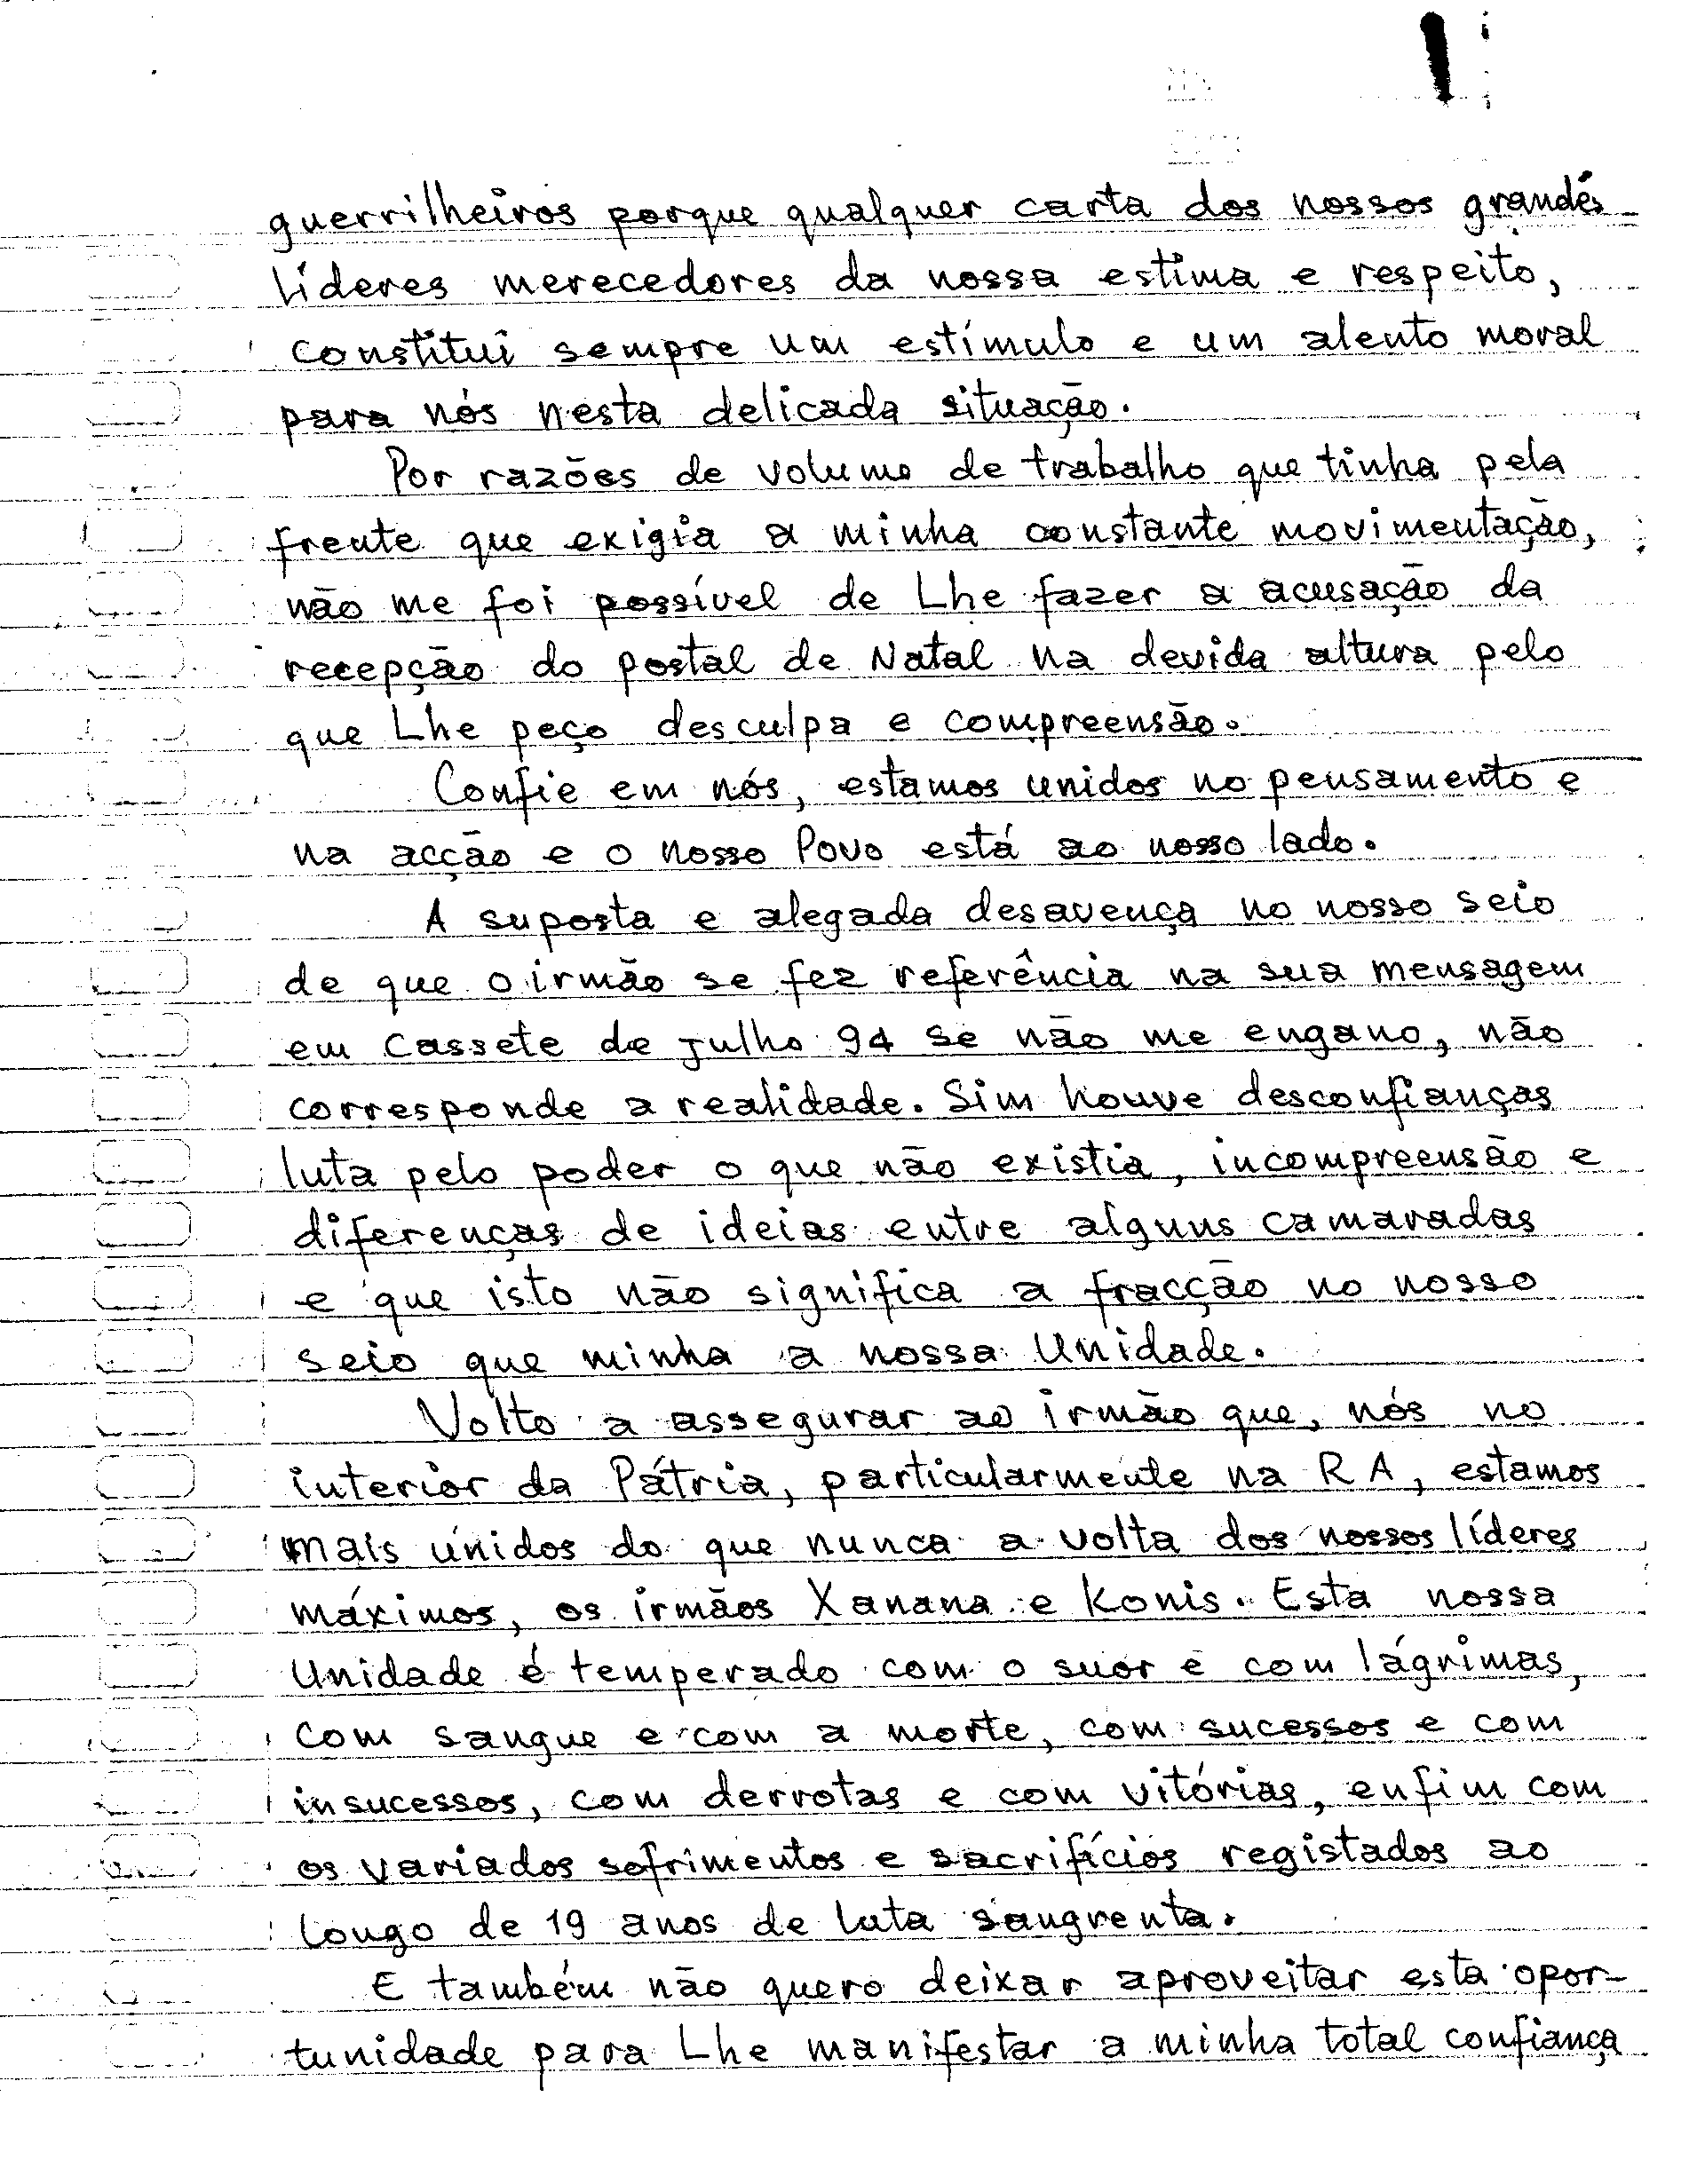 guerrilheiros porque qualquer carta dos nossos grandes
líderes merecedores da nossa estima e respeito,
constitui sempre um estímulo e um alento moral
para nós nesta delicada situação.
Por razões de volume de trabalho que tinha pela
frente que exigia a minha constante movimentação,
não me foi possível de Lhe fazer a acusação da
recepção do postal de Natal na devida altura pelo
que Lhe peço desculpa e compreensão.
Confie em nós, estamos unidos no pensamento e
na acção e o nosso Povo está ao nosso lado.
A suposta e alegada desavença no nosso seio
de que o irmão se fez referência na sua mensagem
em cassete de julho 94 se não me engano, não
corresponde a realidade. Sim houve desconfianças
luta pelo poder o que não existia, incompreensão e
diferenças de ideias entre alguns camaradas
e que isto não significa a fracção no nosso
seio que minha a nossa Unidade.
Volto a assegurar ao irmão que, nós no
interior da Pátria, particularmente na RA, estamos
mais unidos do que nunca a volta dos nossos líderes
máximos, os irmãos Xanana e Konis. Esta nossa
Unidade é temperado com o suor e com lágrimas,
com sangue e com a morte, com sucessos e com
insucessos, com derrotas e com vitórias, enfim com
os variados sofrimentos e sacrifícios registados ao
longo de 19 anos de luta sangrenta.
E também não quero deixar aproveitar esta opor-
tunidade para Lhe manifestar a minha total confiança